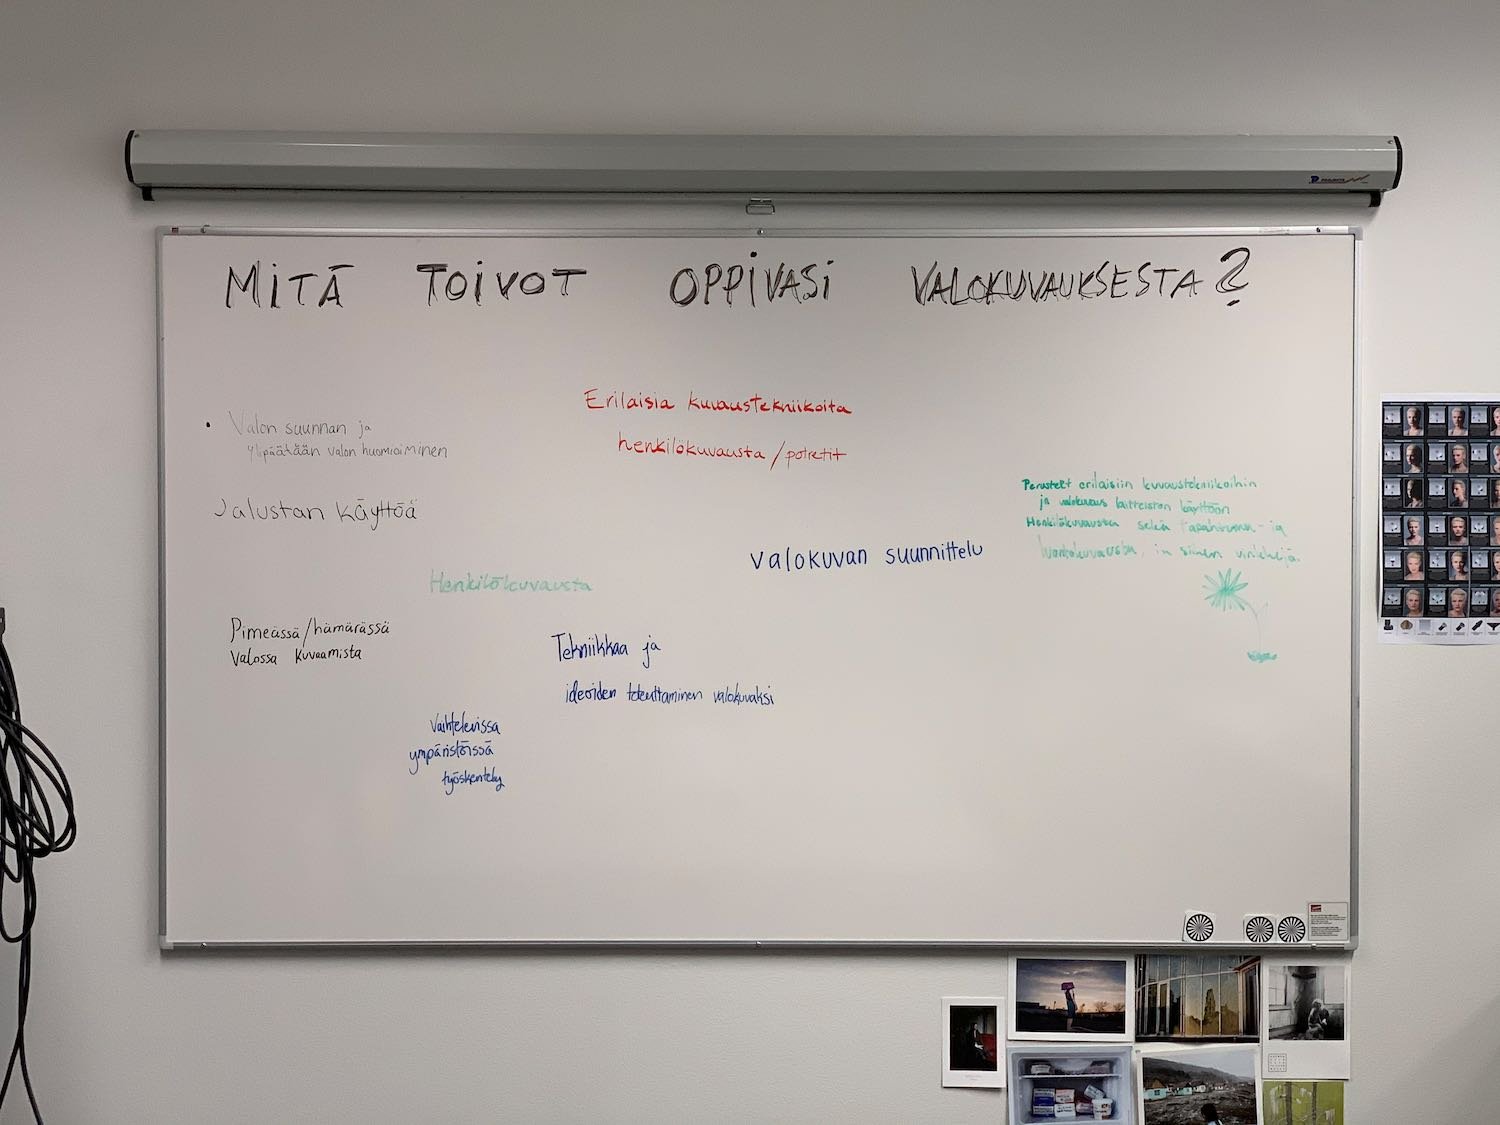 MITÄ TOIVOT OPPIVASI VALOKUVAUKSESTA?
• Valon suunnan ja
ylipäätään valon huomioiminen
Jalustan käyttöä
Pimeässä/hämärässä
valossa kuvaamista
Erilaisia kuvaustekniikoita
henkilökuvausta/potretit
Henkilökuvausta
Valokuvan suunnittelu
Tekniikkaa ja
ideoiden toteuttaminen valokuvaksi
Vaihtelevissa
ympäristöissä
työskentely
Perusteet erilaisiin kuvaustekniikoihin
ja valokuvaus laitteiston käyttöön
Henkilökuvausta sekä tapahtuma- ja
luontokuvausta, ja siihen vinkkejä.